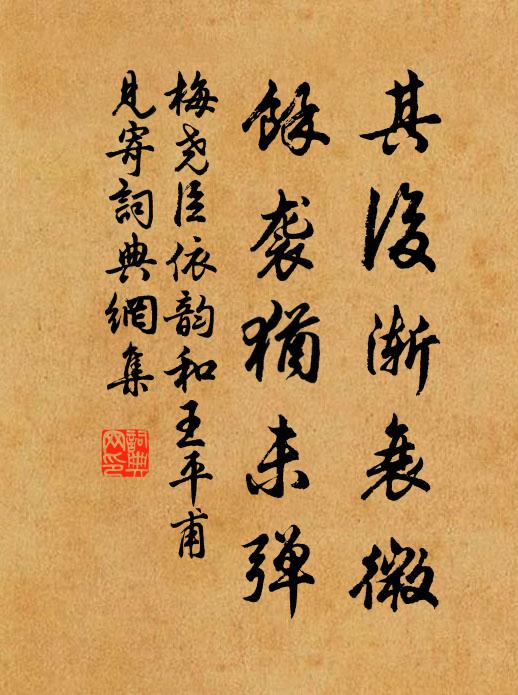 其後漸衰微
餘袭猶未弹
梅尧臣依韵和王平甫
見寄詞典網集
詞典網印